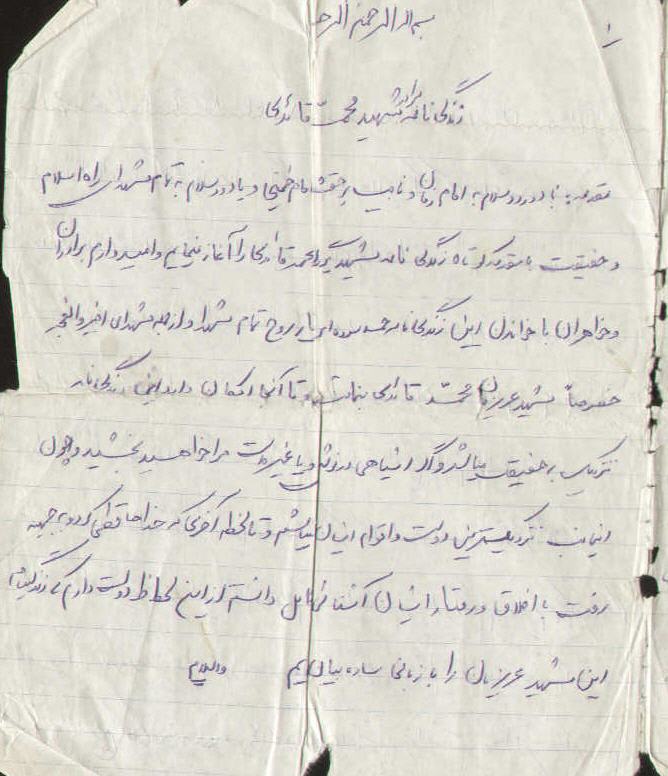 ۱
بسم الله الرحمن الرحیم
زندگینامه برادر شهید محمد قائدی
مقدمه: با درود و سلام به امام زمان و نایب برحقش امام خمینی و با درود و سلام به تمام شهدای راه اسلام
و حقیقت با مقدمه کوتاه زندگی نامه شهید محمد قائدی را آغاز مینمایم و امیدوارم برادران
و خواهران با خواندن این زندگی نامه حمد و سوره ای نثار روح تمام شهدا و از جمله شهدای اخیر والفجر
خصوصاً شهید عزیزمان محمد قائدی بنمایند و تا آنجا که امکان دارد این زندگی نامه
نزدیک به حقیقت میباشد و اگر اشتباهی در نوشتن و یا غیره است مرا خواهید بخشید و چون
اینجانب نزدیکترین دوست و اقوام ایشان میباشم و تا لحظه آخری که خداحافظی کرد و به جبهه
رفت با اخلاق و رفتار ایشان آشنائی کامل داشتم از این لحاظ دوست دارم که زندگینامه
این شهید عزیزمان را با زبانی ساده بیان نمایم والسلام